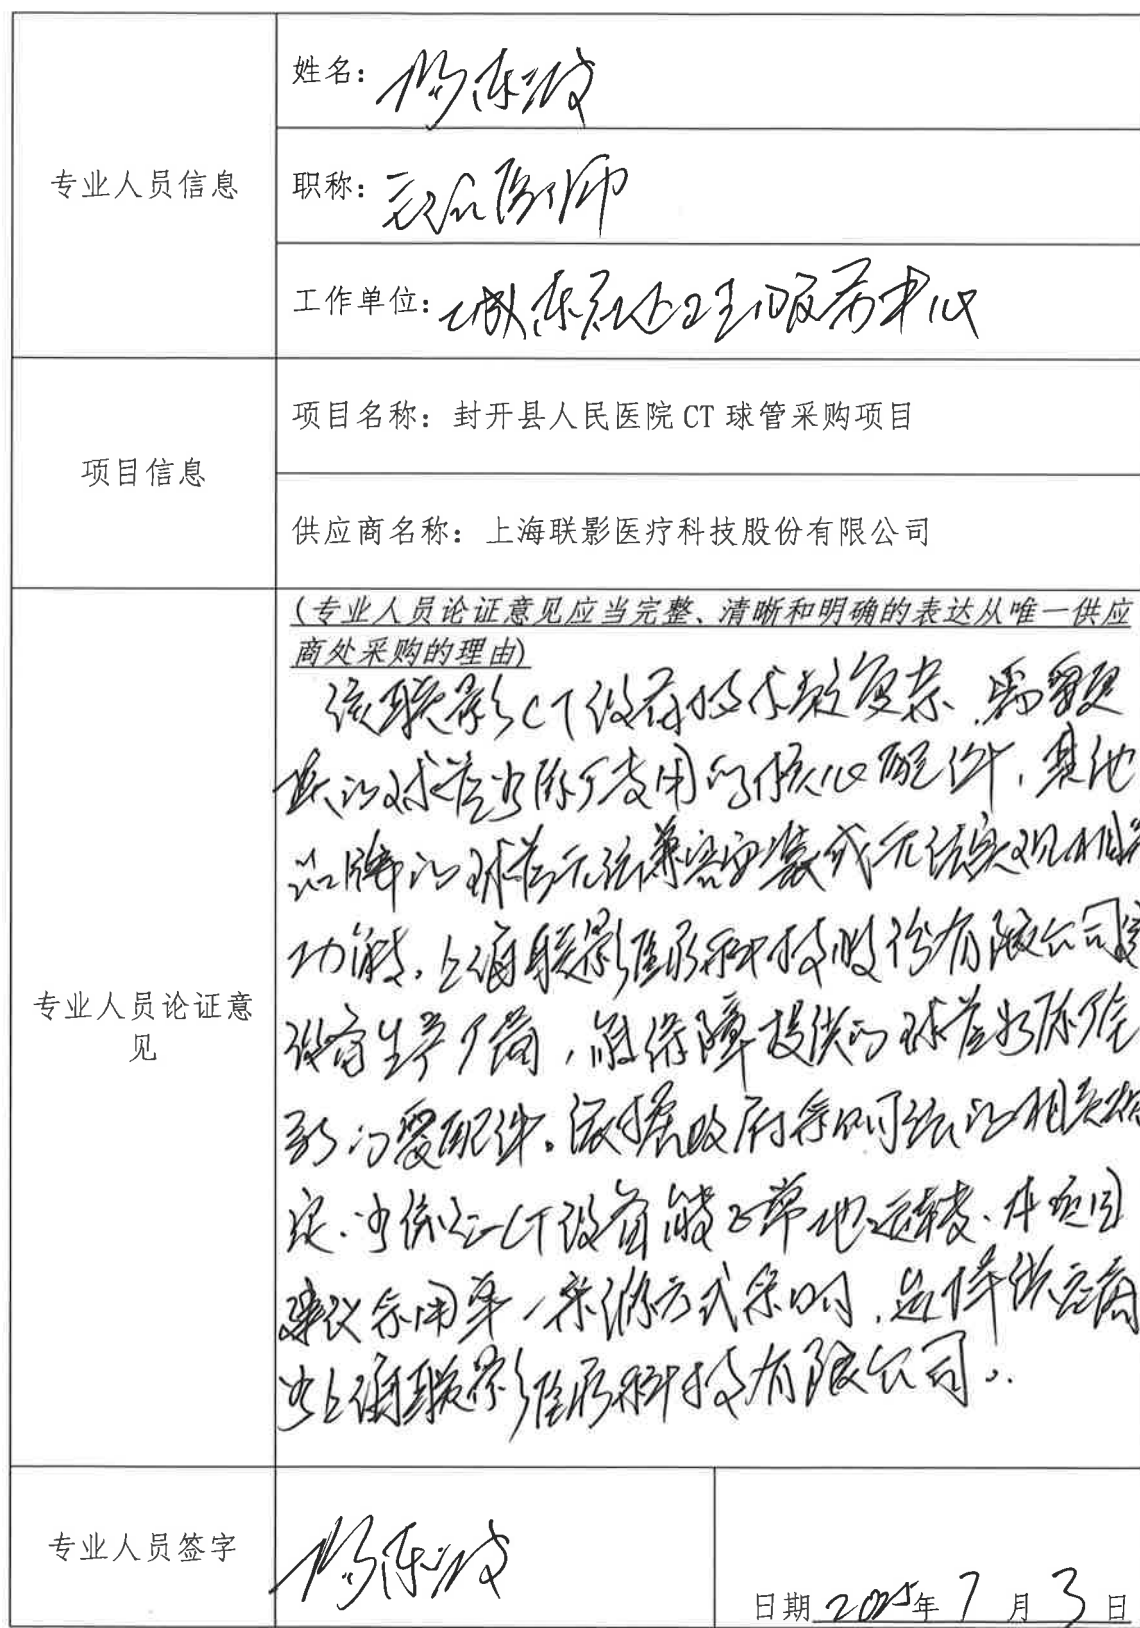 专业人员信息
姓名：杨东波
职称：主治医师
工作单位：城东社区卫生服务中心
项目信息
项目名称：封开县人民医院 CT 球管采购项目
供应商名称：上海联影医疗科技股份有限公司
专业人员论证意
见
(专业人员论证意见应当完整、清晰和明确的表达从唯一供应
商处采购的理由)
该联影CT设备技术较复杂，需要更
换的球管为原厂专用的核心配件，其他
品牌的球管无法兼容安装或无法实现相
功能，上海联影医疗科技股份有限公司
设备生产厂商，能保障提供的球管为原厂全
新的配件。依据政府采购法的相关规
定，为保证CT设备能正常地运转，本项目
建议采用单一来源方式采购，选择供应商
为上海联影医疗科技有限公司。
专业人员签字
杨东波
日期 2025年 7 月 3 日